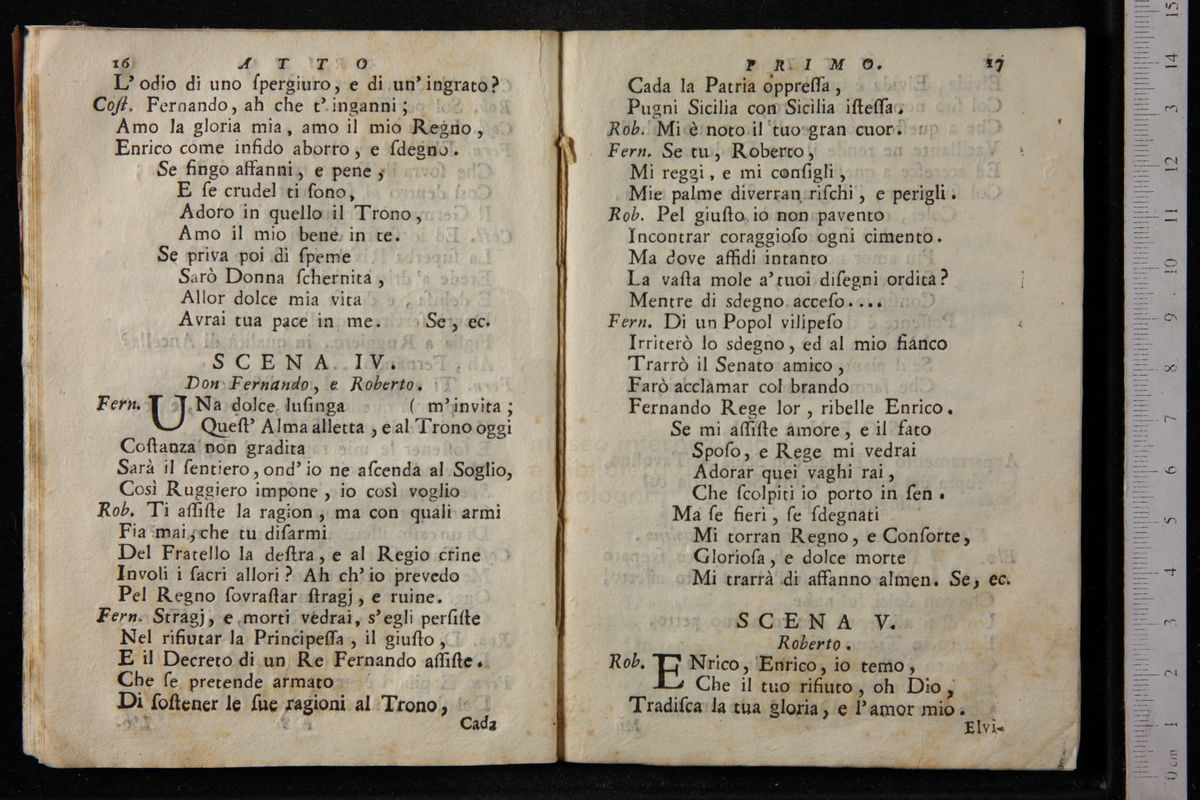 16 ATTO
L' odio di uno ſpergiuro, e di un' ingrato?
Coſt. Fernando, ah che t' inganni;
Amo la gloria mia, amo il mio Regno,
Enrico come infido aborro, e ſdegno.
Se fingo affanni, e pene,
E ſe crudel ti ſono,
Adoro in quello il Trono,
Amo il mio bene in te.
Se priva poi di ſpeme
Sarò Donna ſchernita,
Allor dolce mia vita
Avrai tua pace in me. Se, ec.
SCENA IV.
Don Fernando, e Roberto.
Fern. UNa dolce luſinga ( m' invita;
Queſt' Alma alletta, e al Trono oggi
Coſtanza non gradita
Sarà il ſentiero, ond' io ne aſcenda al Soglio,
Così Ruggiero impone, io così voglio
Rob. Ti aſſiſte la ragion, ma con quali armi
Fia mai, che tu diſarmi
Del Fratello la deſtra, e al Regio crine
Involi i ſacri allori? Ah ch' io prevedo
Pel Regno ſovraſtar ſtragj, e ruine.
Fern. Stragj, e morti vedrai, s' egli perſiſte
Nel rifiutar la Principeſſa, il giuſto,
E il Decreto di un Re Fernando aſſiſte.
Che ſe pretende armato
Di ſoſtener le ſue ragioni al Trono,
Cada
PRIMO. 17
Cada la Patria oppreſſa,
Pugni Sicilia con Sicilia iſteſſa.
Rob. Mi è noto il tuo gran cuor.
Fern. Se tu, Roberto,
Mi reggi, e mi conſigli,
Mie palme diverran riſchi, e perigli.
Rob. Pel giuſto io non pavento
Incontrar coraggioſo ogni cimento.
Ma dove affidi intanto
La vaſta mole a' tuoi diſegni ordita?
Mentre di sdegno acceſo....
Fern. Di un Popol vilipeſo
Irriterò lo sdegno, ed al mio fianco
Trarrò il Senato amico,
Farò acclamar col brando
Fernando Rege lor, ribelle Enrico.
Se mi aſſiſte amore, e il fato
Spoſo, e Rege mi vedrai
Adorar quei vaghi rai,
Che ſcolpiti io porto in ſen.
Ma ſe fieri, ſe ſdegnati
Mi torran Regno, e Conſorte,
Glorioſa, e dolce morte
Mi trarrà di affanno almen. Se, ec.
SCENA V.
Roberto.
Rob. ENrico, Enrico, io temo,
Che il tuo rifiuto, oh Dio,
Tradiſca la tua gloria, e l'amor mio.
Elvi-